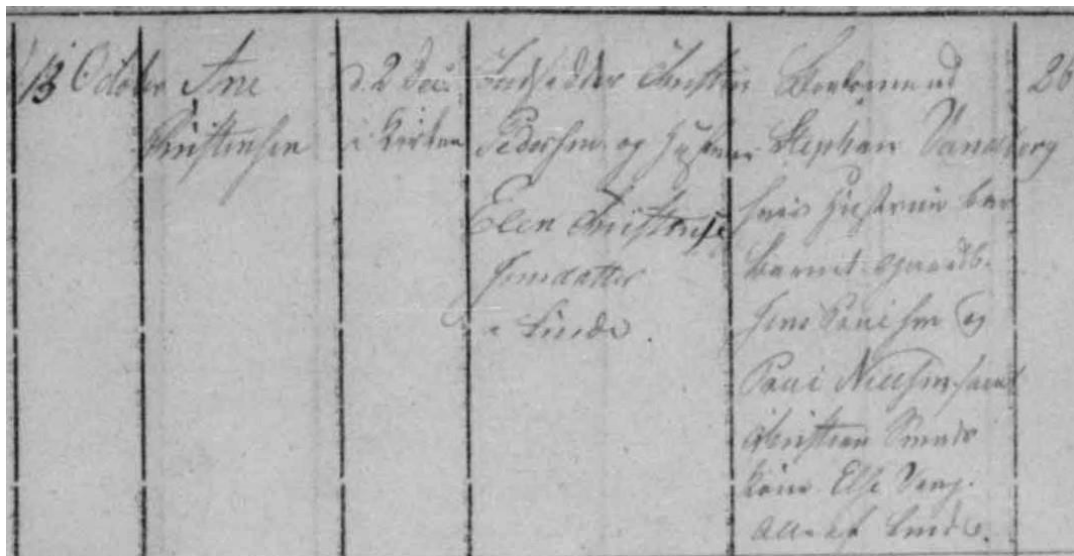 13 October
Ane
Christensen
d. 2 Dec:
i Kirken
Christen
Pedersen og Hustrue
Elen Christense
Jensdatter
i Linde.
Stephan Vandborg
hvis Hustrue bar
Barnet. Gaardb.
Jens Poulsen og
Poul Nielsen samt
Christian Smeds
Kone Else Vang.
Alle af Linde.
26